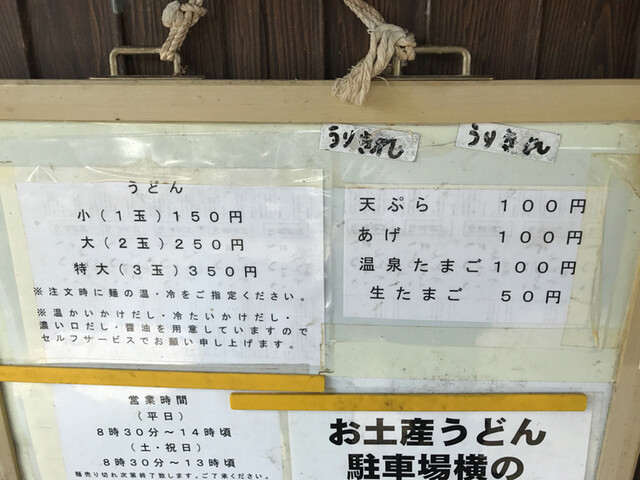 うりきれ
うりきれ
うどん
小(1玉)150円
大(2玉)250円
特大(3玉)350円
※注文時に麺の温・冷をご指定ください。
※温かいかけだし・冷たいかけだし・
濃い口だし・醤油を用意していますので
セルフサービスでお願い申し上げます。
天ぷら 100円
あげ 100円
温泉たまご 100円
生たまご 50円
営業時間
(平日)
8時30分～14時頃
(土・祝日)
8時30分～13時頃
麺売り切れ次第終了致します。ご了承ください。
お土産うどん
駐車場横の